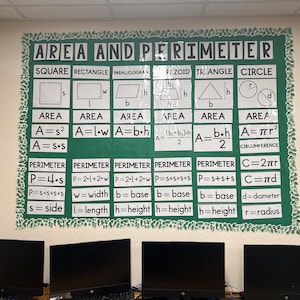 AREA AND PERIMETER
SQUARE RECTANGLE PARALLELOGRAM TRAPEZOID TRIANGLE CIRCLE
s w l h b h b r d
AREA AREA AREA AREA AREA AREA
A=s² A=l•w A=b•h A=b•h/2 A=πr²
A=s•s CIRCUMFERENCE
PERIMETER PERIMETER PERIMETER PERIMETER PERIMETER C=2πr
P=4•s P=2•l+2•w P=2•l+2•w P=s+s+s+s P=s+s+s C=πd
P=s+s+s+s w=width b=base b=base b=base d=diameter
s=side l=length h=height h=height h=height r=radius